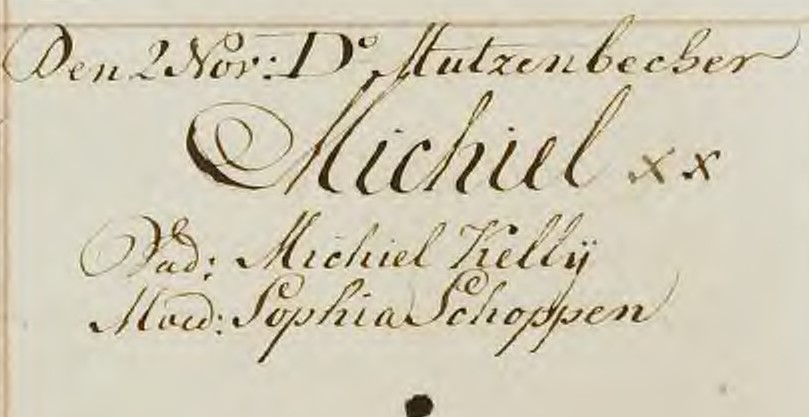 Den 2 Nov: D° Mutzenbecher
Michiel xx
Vad: Michiel Kellÿ
Moed: Sophia Schoppen